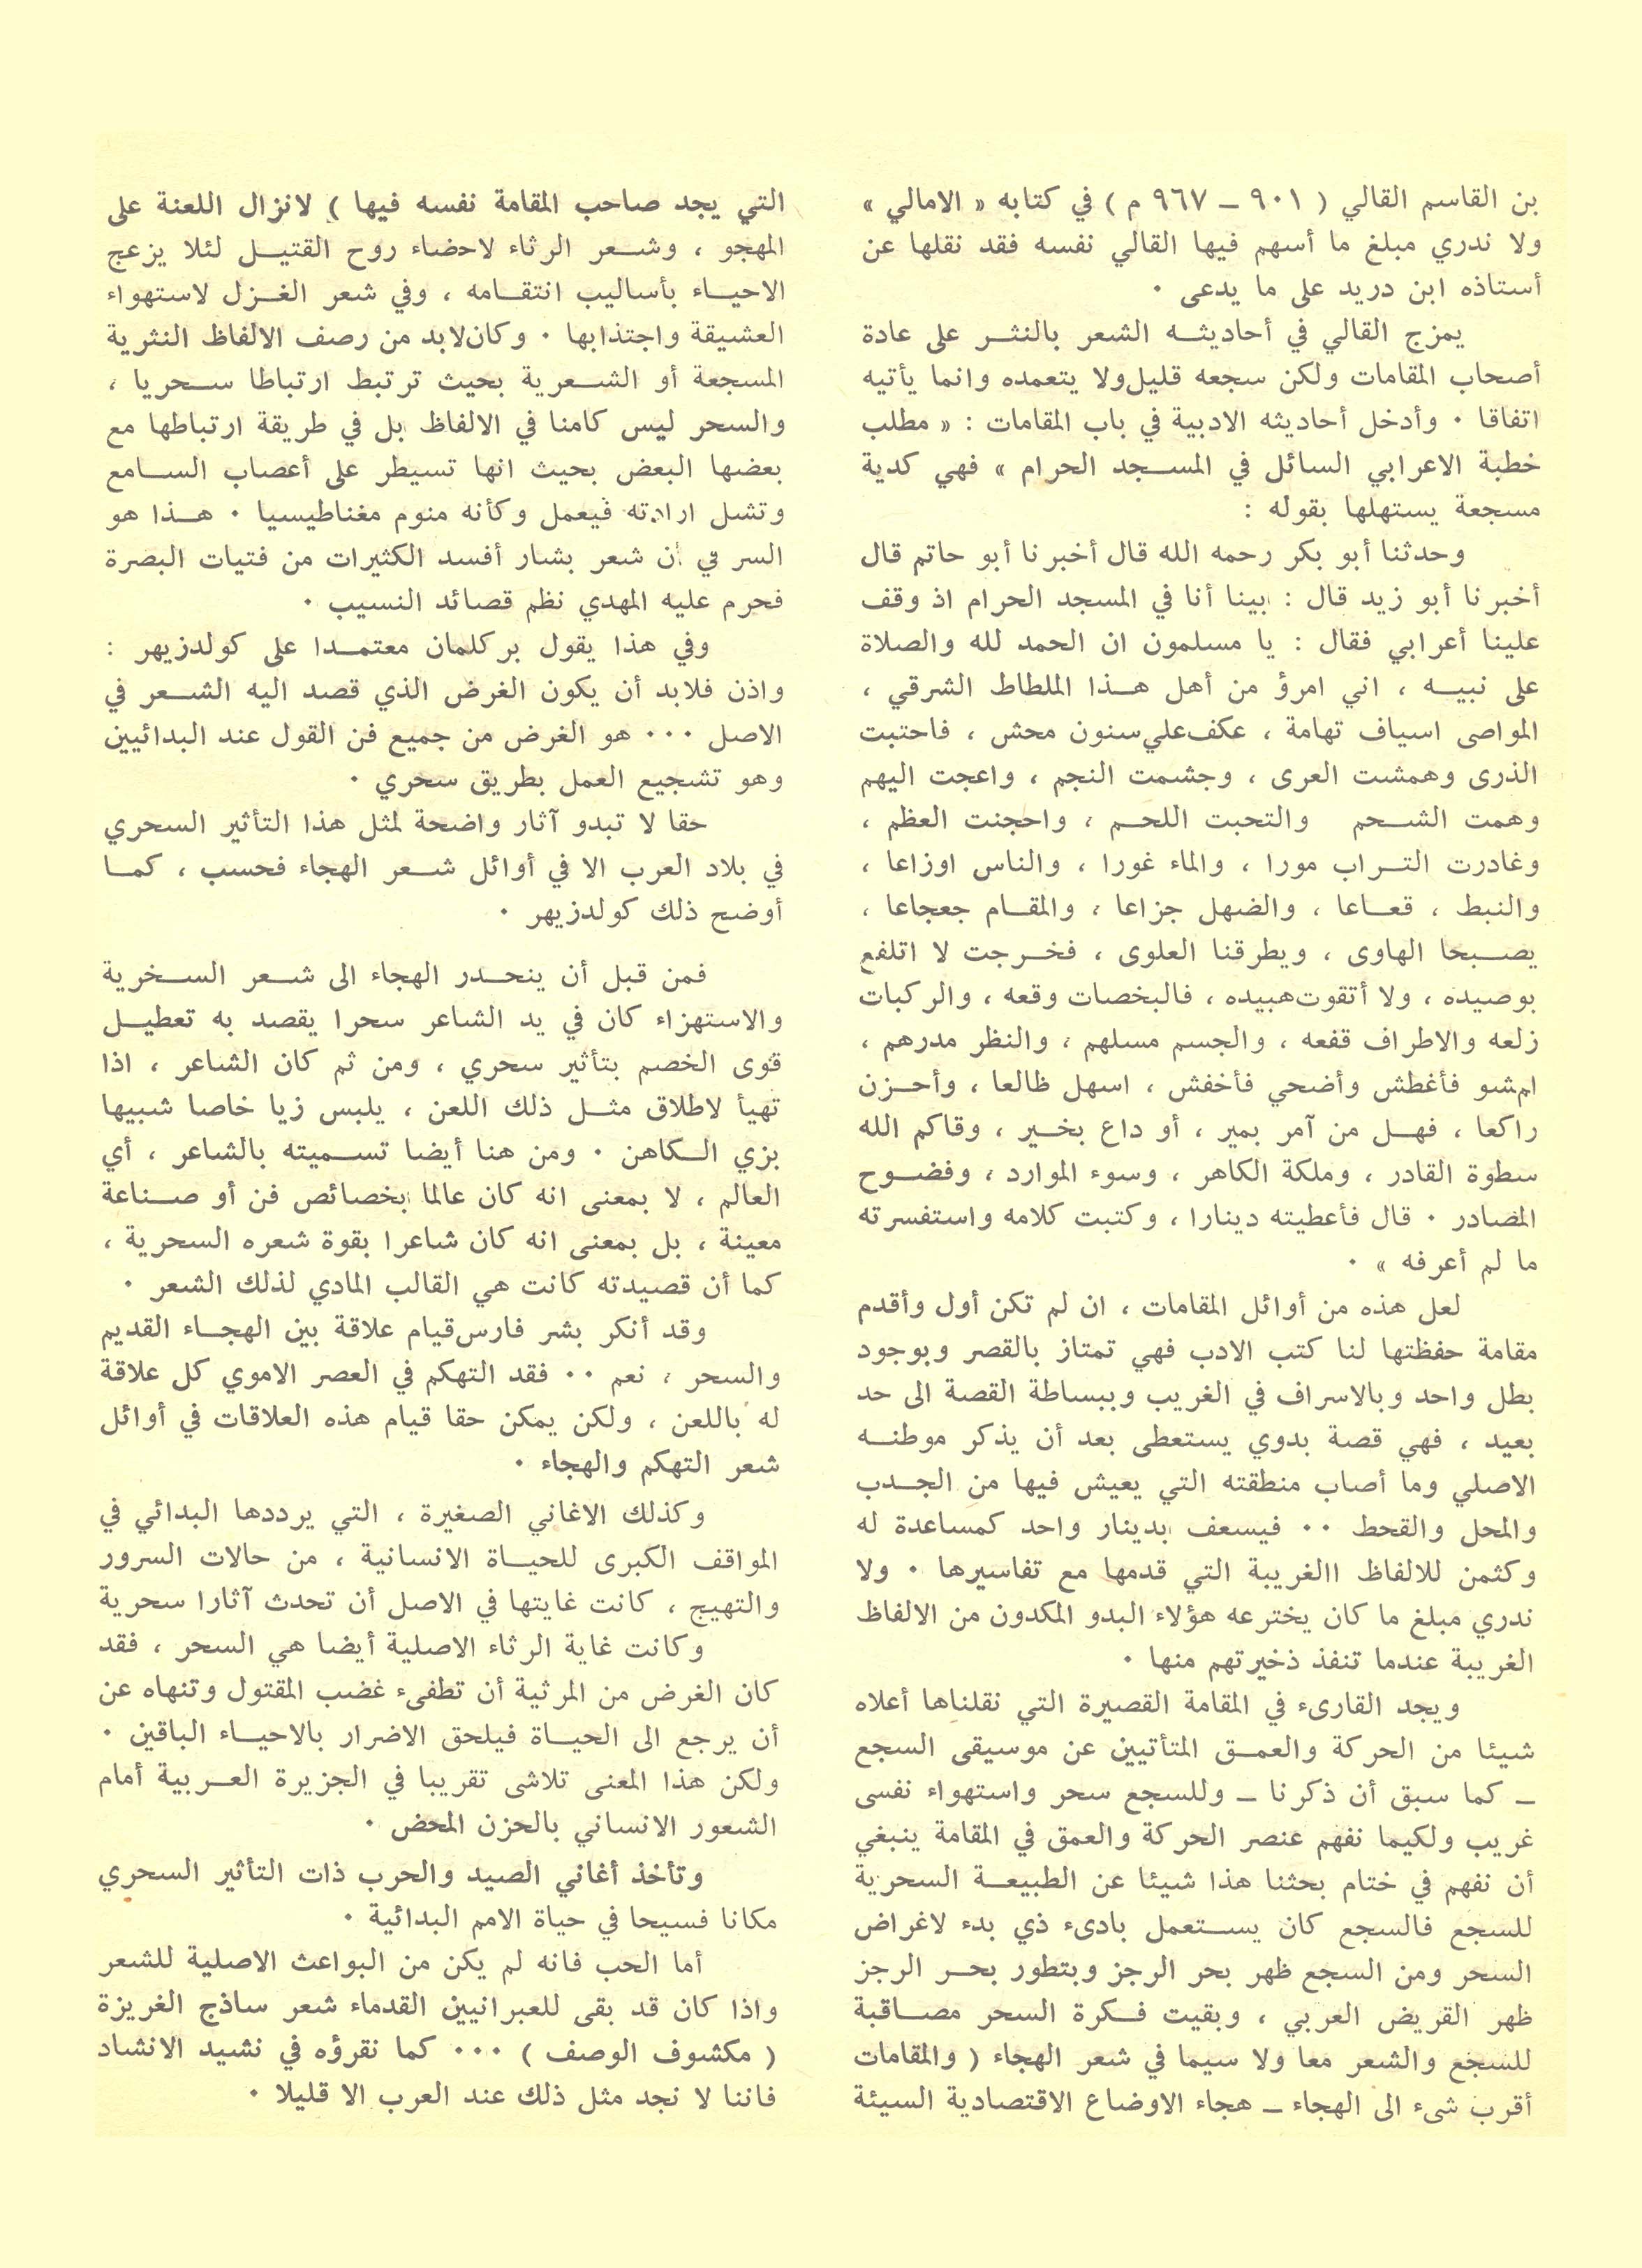 بن القاسم القالي ( ٩٠١ ــ ٩٦٧ م ) في كتابه « الامالي »
ولا ندري مبلغ ما أسهم فيها القالي نفسه فقد نقلها عن
أستاذه ابن دريد على ما يدعى ٠
يمزج القالي في أحاديثه الشعر بالنثر على عادة
أصحاب المقامات ولكن سجعه قليل ولا يتعمده وانما يأتيه
اتفاقا ٠ وأدخل أحاديثه الادبية في باب المقامات : « مطلب
خطبة الاعرابي السائل في المسجد الحرام » فهي كدية
مسجعة يستهلها بقوله :
وحدثنا أبو بكر رحمه الله قال أخبرنا أبو حاتم قال
أخبرنا أبو زيد قال : بينا أنا في المسجد الحرام اذ وقف
علينا أعرابي فقال : يا مسلمون ان الحمد لله والصلاة
على نبيه ، اني امرؤ من أهل هذا الملطاط الشرقي ،
المواصى اسياف تهامة ، عكف علي سنون محش ، فاحتبت
الذرى وهمشت العرى ، وجشمت النجم ، واعجت اليهم
وهمت الشحم والتحبت اللحم ، واحجنت العظم ،
وغادرت التراب مورا ، والماء غورا ، والناس اوزاعا ،
والنبط ، قعاعا ، والضهل جزاعا ، والمقام جعجاعا ،
يصبحا الهاوى ، ويطرقنا العلوى ، فخرجت لا اتلفع
بوصيده ، ولا أتقوت هبيده ، فالبخصات وقعه ، والركبات
زلعه والاطراف قفعه ، والجسم مسلهم ، والنظر مدرهم ،
امشو فأغطش وأضحي فأخفش ، اسهل ظالعا ، وأحزن
راكعا ، فهل من آمر بمير ، أو داع بخير ، وقاكم الله
سطوة القادر ، وملكة الكاهر ، وسوء الموارد ، وفضوح
المصادر ٠ قال فأعطيته دينارا ، وكتبت كلامه واستفسرته
ما لم أعرفه » ٠
لعل هذه من أوائل المقامات ، ان لم تكن أول وأقدم
مقامة حفظتها لنا كتب الادب فهي تمتاز بالقصر وبوجود
بطل واحد وبالاسراف في الغريب وببساطة القصة الى حد
بعيد ، فهي قصة بدوي يستعطى بعد أن يذكر موطنه
الاصلي وما أصاب منطقته التي يعيش فيها من الجدب
والمحل والقحط ٠٠ فيسعف بدينار واحد كمساعدة له
وكثمن للالفاظ االغريبة التي قدمها مع تفاسيرها ٠ ولا
ندري مبلغ ما كان يخترعه هؤلاء البدو المكدون من الالفاظ
الغريبة عندما تنفذ ذخيرتهم منها ٠
ويجد القارىء في المقامة القصيرة التي نقلناها أعلاه
شيئا من الحركة والعمق المتأتيين عن موسيقى السجع
ــ كما سبق أن ذكرنا ــ وللسجع سحر واستهواء نفسى
غريب ولكيما نفهم عنصر الحركة والعمق في المقامة ينبغي
أن نفهم في ختام بحثنا هذا شيئا عن الطبيعة السحرية
للسجع فالسجع كان يستعمل بادىء ذي بدء لاغراض
السحر ومن السجع ظهر بحر الرجز وبتطور بحر الرجز
ظهر القريض العربي ، وبقيت فكرة السحر مصاقبة
للسجع والشعر معا ولا سيما في شعر الهجاء ( والمقامات
أقرب شىء الى الهجاء ــ هجاء الاوضاع الاقتصادية السيئة
التي يجد صاحب المقامة نفسه فيها ) لانزال اللعنة على
المهجو ، وشعر الرثاء لاحضاء روح القتيل لئلا يزعج
الاحياء بأساليب انتقامه ، وفي شعر الغزل لاستهواء
العشيقة واجتذابها ٠ وكان لابد من رصف الالفاظ النثرية
المسجعة أو الشعرية بحيث ترتبط ارتباطا سحريا ،
والسحر ليس كامنا في الالفاظ بل في طريقة ارتباطها مع
بعضها البعض بحيث انها تسيطر على أعصاب السامع
وتشل ارادته فيعمل وكأنه منوم مغناطيسيا ٠ هذا هو
السر في أن شعر بشار أفسد الكثيرات من فتيات البصرة
فحرم عليه المهدي نظم قصائد النسيب ٠
وفي هذا يقول بركلمان معتمدا على كولدزيهر :
واذن فلابد أن يكون الغرض الذي قصد اليه الشعر في
الاصل ٠٠٠ هو الغرض من جميع فن القول عند البدائيين
وهو تشجيع العمل بطريق سحري ٠
حقا لا تبدو آثار واضحة لمثل هذا التأثير السحري
في بلاد العرب الا في أوائل شعر الهجاء فحسب ، كما
أوضح ذلك كولدزيهر ٠
فمن قبل أن ينحدر الهجاء الى شعر السخرية
والاستهزاء كان في يد الشاعر سحرا يقصد به تعطيل
قوى الخصم بتأثير سحري ، ومن ثم كان الشاعر ، اذا
تهيأ لاطلاق مثل ذلك اللعن ، يلبس زيا خاصا شبيها
بزي الكاهن ٠ ومن هنا أيضا تسميته بالشاعر ، أي
العالم ، لا بمعنى انه كان عالما بخصائص فن أو صناعة
معينة ، بل بمعنى انه كان شاعرا بقوة شعره السحرية ،
كما أن قصيدته كانت هي القالب المادي لذلك الشعر ٠
وقد أنكر بشر فارس قيام علاقة بين الهجاء القديم
والسحر ، نعم ٠٠ فقد التهكم في العصر الاموي كل علاقة
له باللعن ، ولكن يمكن حقا قيام هذه العلاقات في أوائل
شعر التهكم والهجاء ٠
وكذلك الاغاني الصغيرة ، التي يرددها البدائي في
المواقف الكبرى للحياة الانسانية ، من حالات السرور
والتهيج ، كانت غايتها في الاصل أن تحدث آثارا سحرية
وكانت غاية الرثاء الاصلية أيضا هي السحر ، فقد
كان الغرض من المرثية أن تطفىء غضب المقتول وتنهاه عن
أن يرجع الى الحياة فيلحق الاضرار بالاحياء الباقين ٠
ولكن هذا المعنى تلاشى تقريبا في الجزيرة العربية أمام
الشعور الانساني بالحزن المحض ٠
وتأخذ أغاني الصيد والحرب ذات التأثير السحري
مكانا فسيحا في حياة الامم البدائية ٠
أما الحب فانه لم يكن من البواعث الاصلية للشعر
واذا كان قد بقى للعبرانيين القدماء شعر ساذج الغريزة
( مكشوف الوصف ) ٠٠٠ كما نقرؤه في نشيد الانشاد
فاننا لا نجد مثل ذلك عند العرب الا قليلا ٠